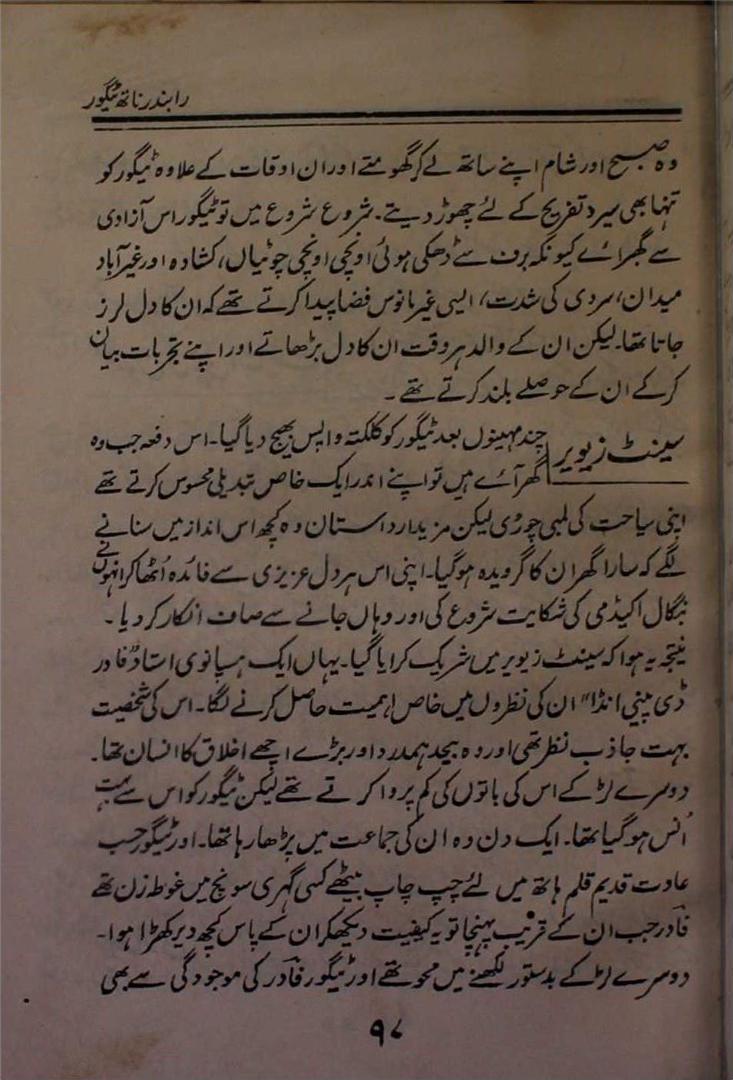 رابندر ناتھ ٹیگور
وہ صبح اور شام اپنے ساتھ لے کر گھومتے اور ان اوقات کے علاوہ ٹیگور کو
تنہا بھی سیر و تفریح کے لئے چھوڑ دیتے۔ شروع شروع میں تو ٹیگور اس آزادی
سے گھبرائے کیونکہ برف سے ڈھکی ہوئی اونچی اونچی چوٹیاں، کشادہ اور غیر آباد
میدان، سردی کی شدت، ایسی غیر مانوس فضا پیدا کرتے تھے کہ ان کا دل لرز
جاتا تھا۔ لیکن ان کے والد ہر وقت ان کا دل بڑھاتے اور اپنے تجربات بیان
کر کے ان کے حوصلے بلند کرتے تھے۔
سینٹ زیویر چند مہینوں بعد ٹیگور کو کلکتہ واپس بھیج دیا گیا۔ اس دفعہ جب وہ
گھر آئے ہیں تو اپنے اندر ایک خاص تبدیلی محسوس کرتے تھے
اپنی سیاحت کی لمبی چوڑی لیکن مزیدار داستان وہ کچھ اس انداز میں سنانے
لگے کہ سارا گھر ان کا گرویدہ ہو گیا۔ اپنی اس ہر دل عزیزی سے فائدہ اُٹھا کر انہوں نے
بنگال اکیڈمی کی شکایت شروع کی اور وہاں جانے سے صاف انکار کر دیا۔
نتیجہ یہ ہوا کہ سینٹ زیویر میں شریک کرایا گیا۔ یہاں ایک ہسپانوی استاد "فادر
ڈی پینی انڈا" ان کی نظروں میں خاص اہمیت حاصل کرنے لگا۔ اس کی شخصیت
بہت جاذب نظر تھی اور وہ بیحد ہمدرد اور بڑے اچھے اخلاق کا انسان تھا۔
دوسرے لڑکے اس کی باتوں کی کم پروا کرتے تھے لیکن ٹیگور کو اس سے بہت
اُنس ہو گیا تھا۔ ایک دن وہ ان کی جماعت میں پڑھا رہا تھا۔ اور ٹیگور حسب
عادت قدیم قلم ہاتھ میں لئے چپ چاپ بیٹھے کسی گہری سونچ میں غوطہ زن تھے
فادر جب ان کے قریب پہنچا تو یہ کیفیت دیکھکر ان کے پاس کچھ دیر کھڑا ہوا۔
دوسرے لڑکے بدستور لکھنے میں محو تھے اور ٹیگور فادر کی موجودگی سے بھی
۹۷